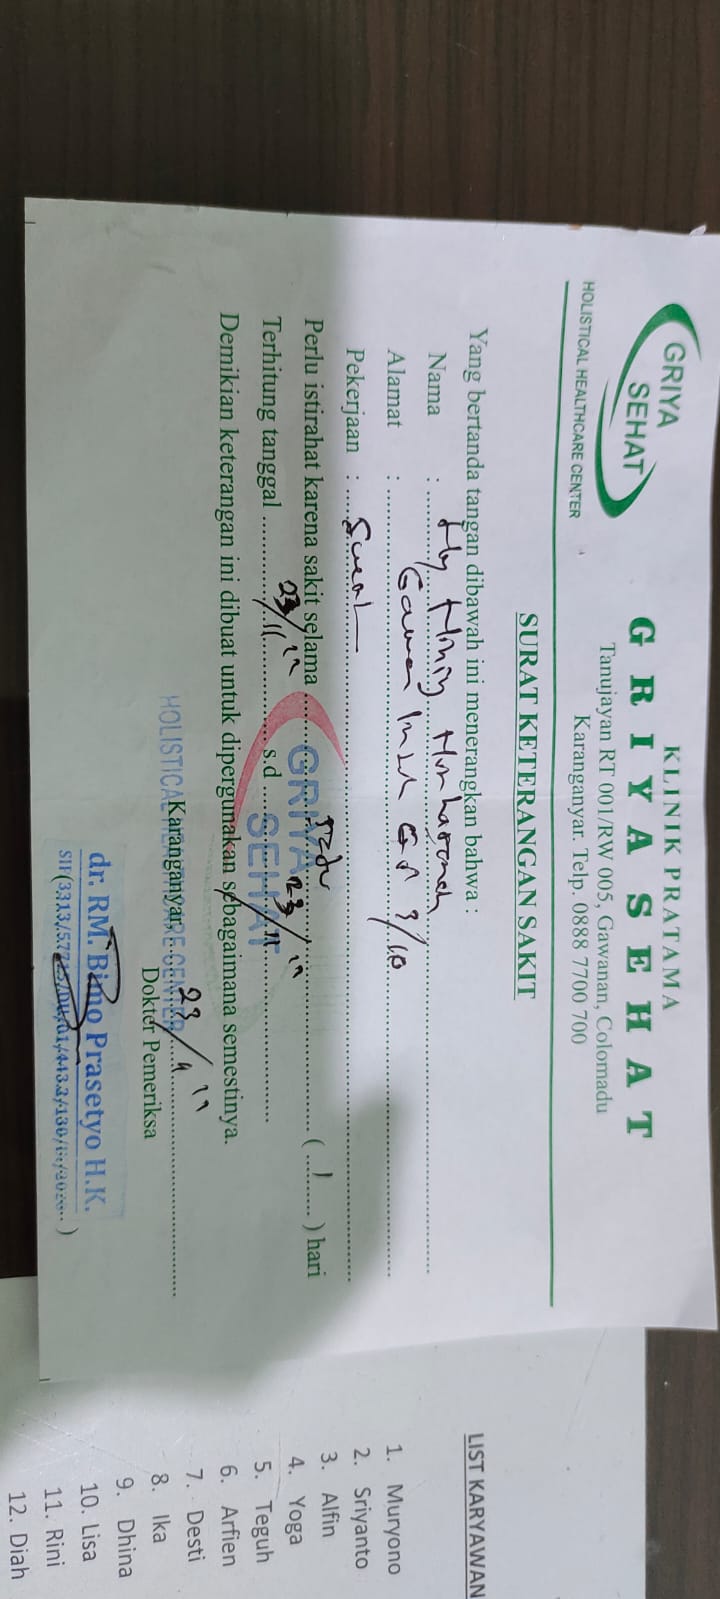 GRIYA
SEHAT
HOLISTICAL HEALTHCARE CENTER
KLINIK PRATAMA
GRIYA SEHAT
Tanujayan RT 001/RW 005, Gawanan, Colomadu
Karanganyar. Telp. 0888 7700 700
SURAT KETERANGAN SAKIT
Yang bertanda tangan dibawah ini menerangkan bahwa :
Nama :
Alamat :
Pekerjaan : Swast
Perlu istirahat karena sakit selama ( 1 ) hari
Terhitung tanggal 23/11 s.d 23/11
Demikian keterangan ini dibuat untuk dipergunakan sebagaimana semestinya.
Karanganyar, 23/
Dokter Pemeriksa
GRIYA
SEHAT
HOLISTICAL HEALTHCARE CENTER
dr. RM. Bimo Prasetyo H.K.
LIST KARYAWAN
1. Muryono
2. Sriyanto
3. Alfin
4. Yoga
5. Teguh
6. Arfien
7. Desti
8. Ika
9. Dhina
10. Lisa
11. Rini
12. Diah